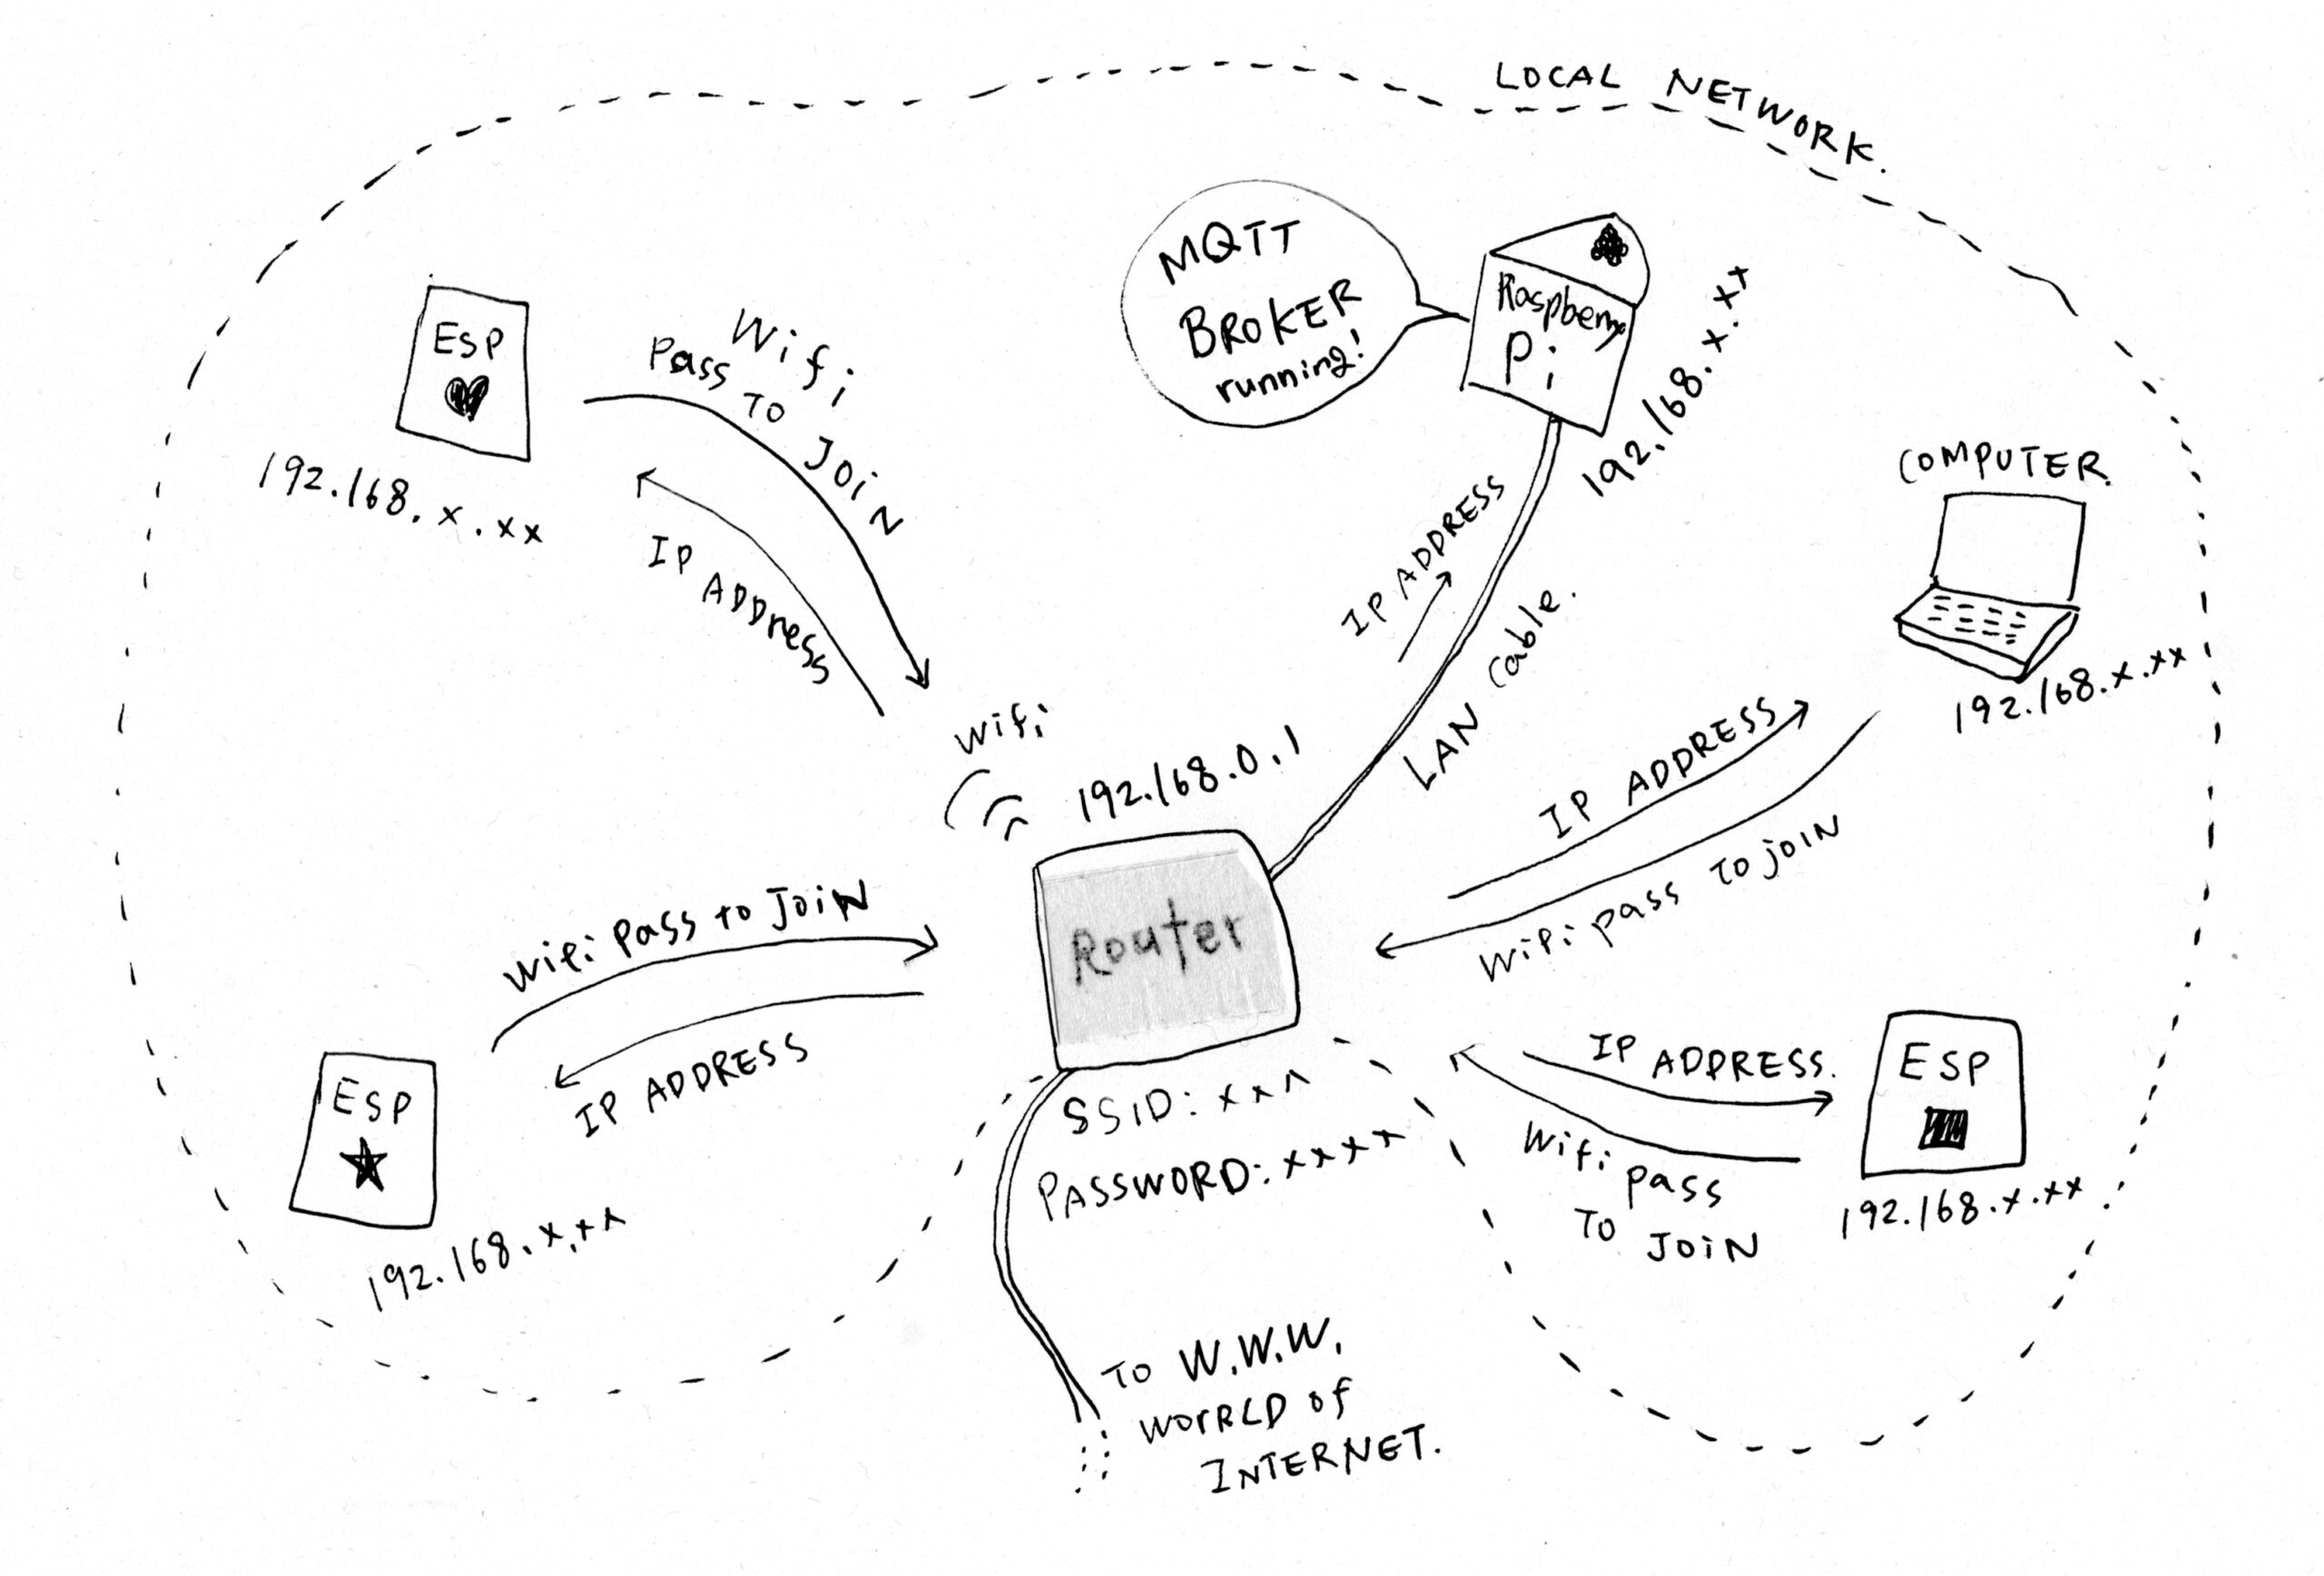 LOCAL NETWORK.
MQTT
BROKER
running!
Raspberry
Pi
192.168.x.xx
ESP
192.168.x.xx
Wifi
Pass TO JOiN
IP ADDress
IP ADDRESS
LAN Cable.
COMPUTER.
192.168.x.xx
IP ADDRESS
Wifi pass TO joIN
wifi
192.168.0.1
Router
SSID: xxx
PASSWORD: xxxx
Wifi Pass to JoiN
IP ADDRESS
ESP
192.168.x.xx
IP ADDRESS.
Wifi pass
TO JOiN
ESP
192.168.x.xx
TO W.W.W.
WOrRLD of
INTERNET.